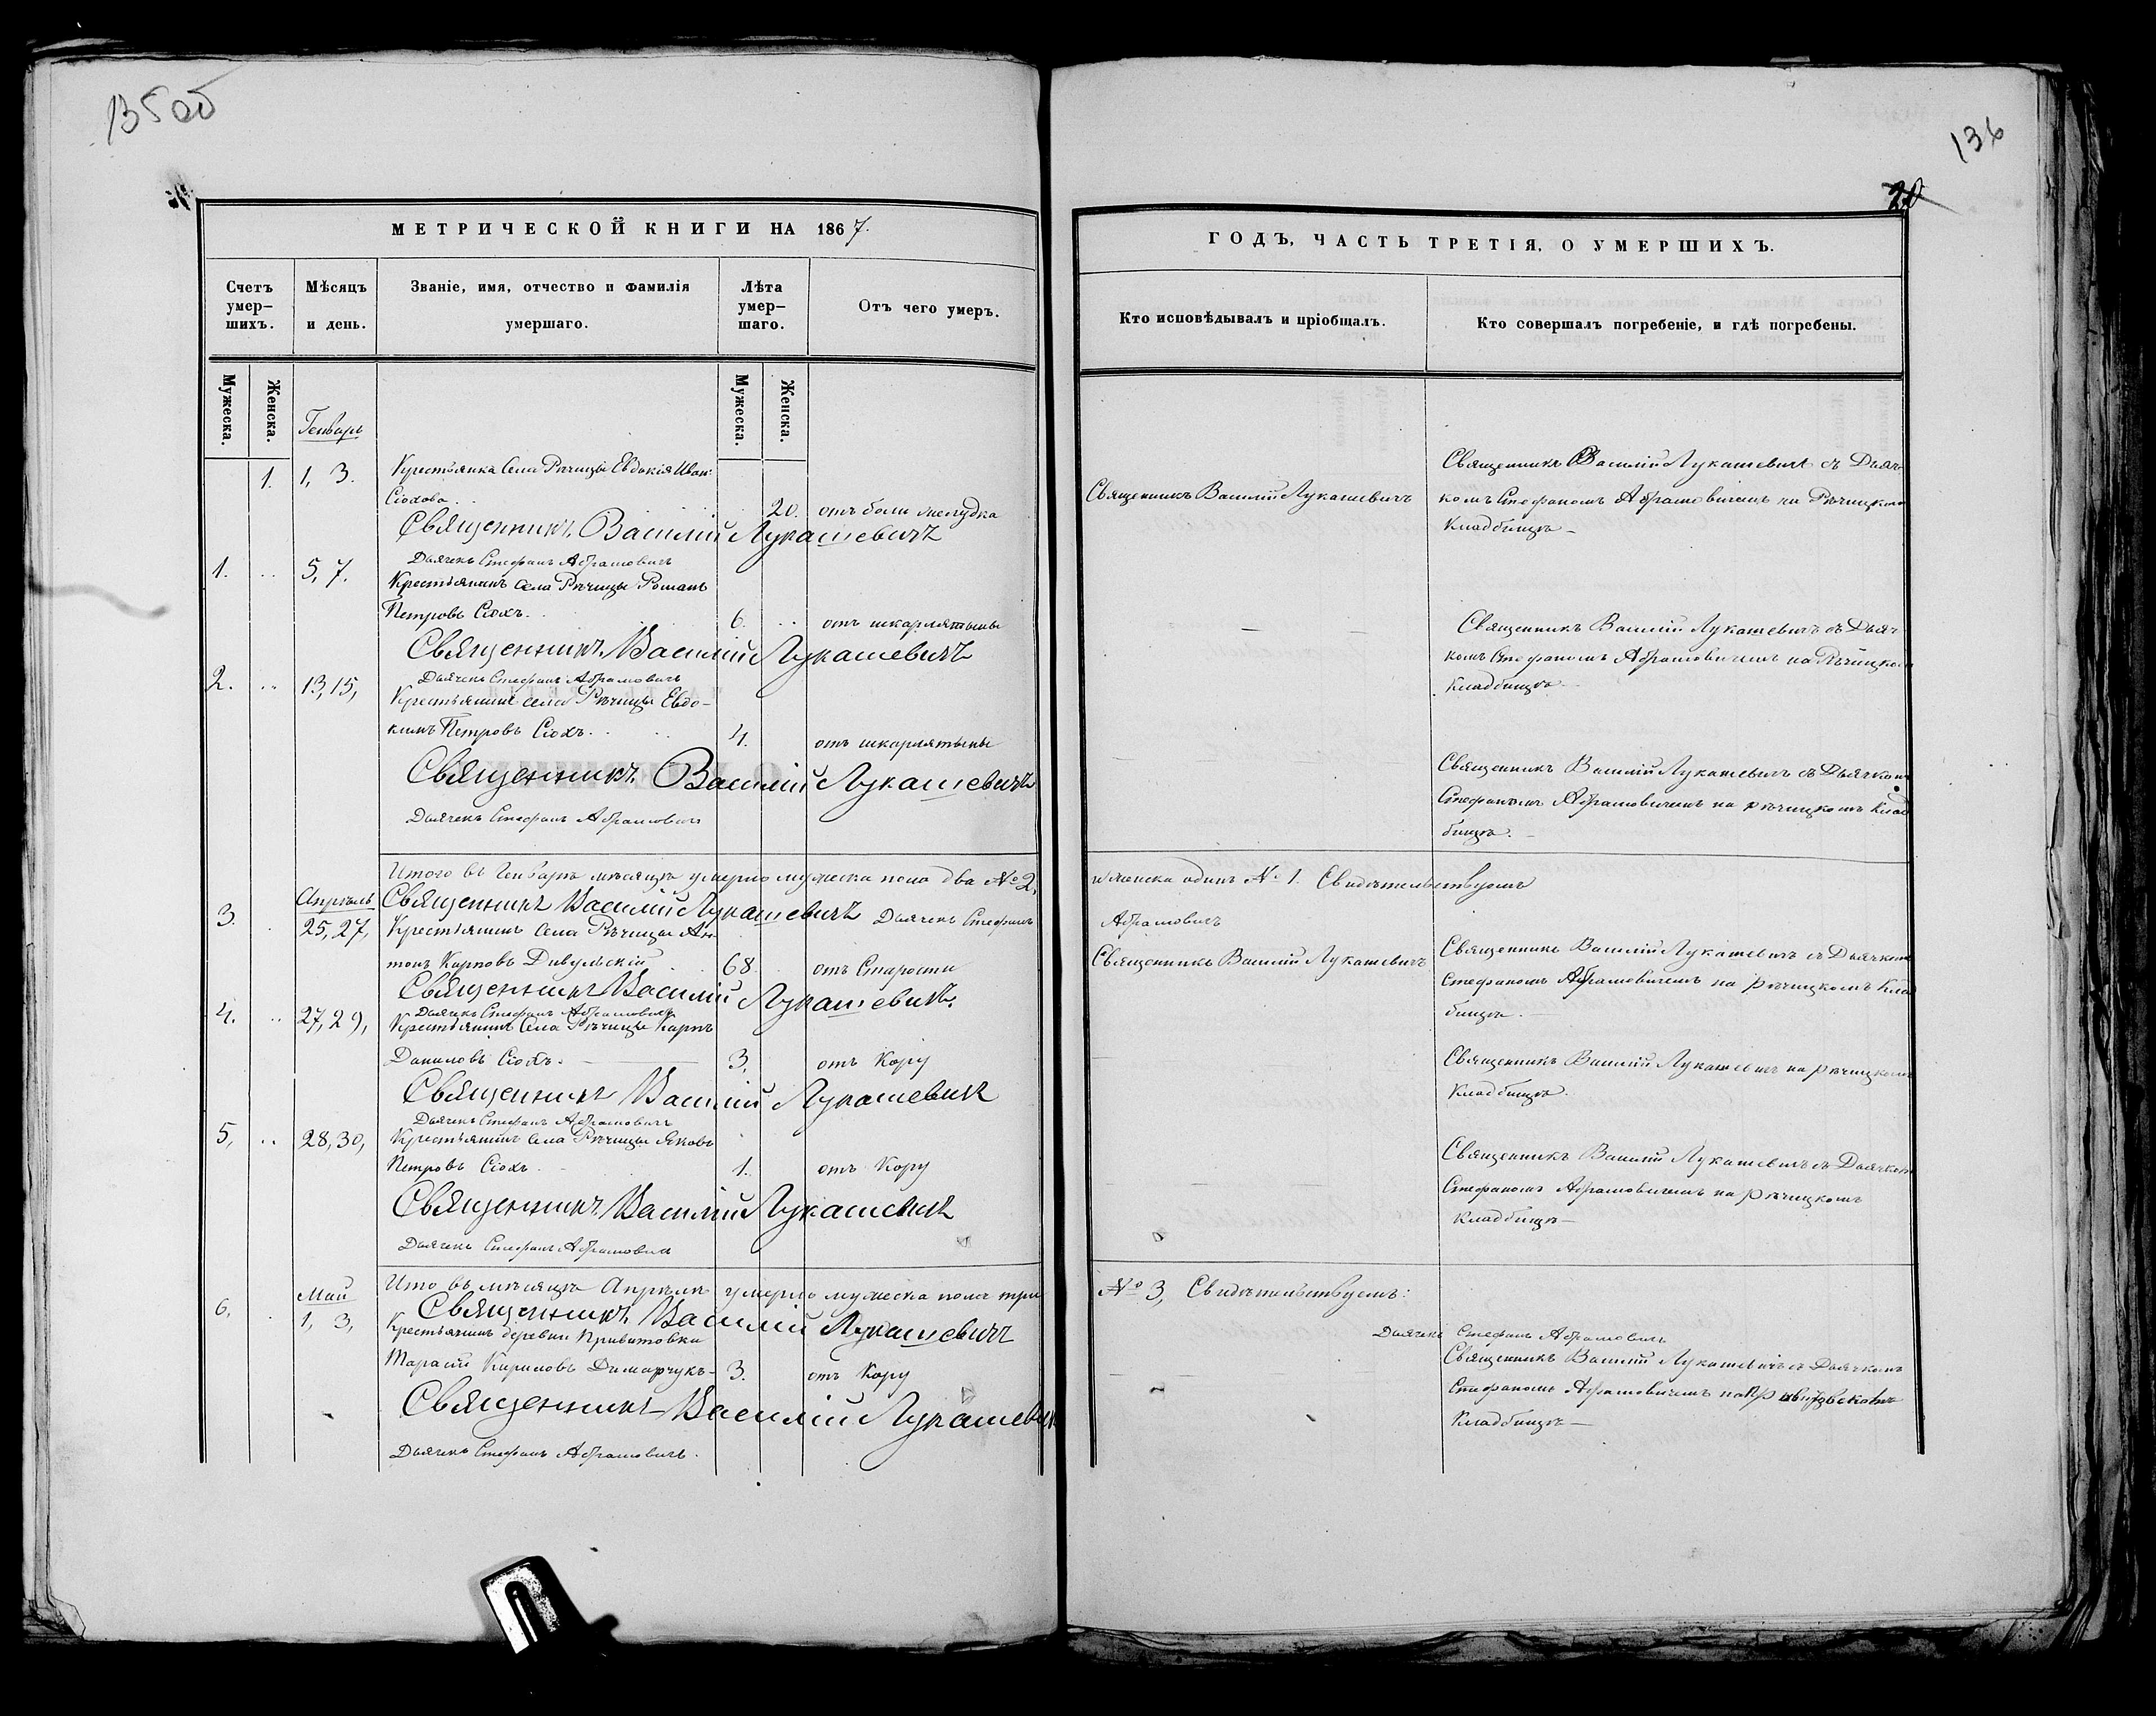 135 об
136
20
МЕТРИЧЕСКОЙ КНИГИ НА 1867.
Счетъ умер-шихъ.
Мѣсяцъ и день.
Званіе, имя, отчество и фамилія умершаго.
Лѣта умер-шаго.
Отъ чего умеръ.
Мужеска.
Женска.
Мужеска.
Женска.
Генварь
1. 1, 3. Крестьянка Села Рѣчицы Евдокія Иван:
Сіохова. 20. отъ боли желудка
Священникъ Василій Лукашевичъ
Дьячекъ Стефанъ Абрамовичъ
1. 5, 7. Крестьянинъ села Рѣчицы Романъ
Петровъ Сіохъ. 6. отъ шкарлятыны
Священникъ Василій Лукашевичъ
Дьячекъ Стефанъ Абрамовичъ
2. 13, 15, Крестьянинъ села Рѣчицы Евдо-
кимъ Петровъ Сіохъ. 4. отъ шкарлятыны
Священникъ Василій Лукашевичъ
Дьячекъ Стефанъ Абрамовичъ
Итого въ Генварѣ мѣсяцѣ умерло мужеска пола два № 2,
Апрѣль Священникъ Василій Лукашевичъ Дьячекъ Стефанъ
3. 25, 27, Крестьянинъ Села Рѣчицы Ан-
тонъ Карповъ Дивульскій 68 отъ Старости
Священникъ Василій Лукашевичъ.
Дьячекъ Стефанъ Абрамовичъ
4. 27, 29, Крестьянинъ Села Рѣчицы Карпъ
Даниловъ Сіохъ. 3, отъ Кору
Священникъ Василій Лукашевичъ
Дьячекъ Стефанъ Абрамовичъ
5, 28, 30, Крестьянинъ Села Рѣчицы Яковъ
Петровъ Сіохъ 1. отъ Кору
Священникъ Василій Лукашевичъ
Дьячекъ Стефанъ Абрамовичъ
Ито въ мѣсяцѣ Апрѣлѣ умерло мужеска пола три
Май Священникъ Василій Лукашевичъ
6. 1, 3, Крестьянинъ деревни Привитовки
Тарасій Кириловъ Димарчукъ 3. отъ Кору
Священникъ Василій Лукашевичъ
Дьячекъ Стефанъ Абрамовичъ.
ГОДЪ, ЧАСТЬ ТРЕТІЯ, О УМЕРШИХЪ.
Кто исповѣдывалъ и пріобщалъ.
Кто совершалъ погребеніе, и гдѣ погребены.
Священникъ Василій Лукашевичъ
Священникъ Василій Лукашевичъ съ Дьяч-
комъ Стефаномъ Абрамовичемъ на Рѣчицкомъ
Кладбищѣ –
Священникъ Василій Лукашевичъ съ Дьяч-
комъ Стефаномъ Абрамовичемъ на Рѣчицком
Кладбищѣ.
Священникъ Василій Лукашевичъ съ Дьячком
Стефаномъ Абрамовичемъ на рѣчицкомъ Клад
бищѣ. –
и женска одинъ № 1. Свидѣтельствуемъ
Абрамовичъ
Священникъ Василій Лукашевичъ
Священникъ Василій Лукашевичъ съ Дьячком
Стефаномъ Абрамовичемъ на рѣчицкомъ Клад
бищѣ. –
Священникъ Василій Лукашевичъ на рѣчицкомъ
Кладбищѣ.
Священникъ Василій Лукашевичъ съ Дьячком
Стефаномъ Абрамовичемъ на рѣчицкомъ
Кладбищѣ –
№ 3, Свидѣтельствуемъ:
Дьячекъ Стефанъ Абрамовичъ
Священникъ Василій Лукашевичъ съ Дьячкомъ
Стефаномъ Абрамовичемъ на
Кладбищѣ –